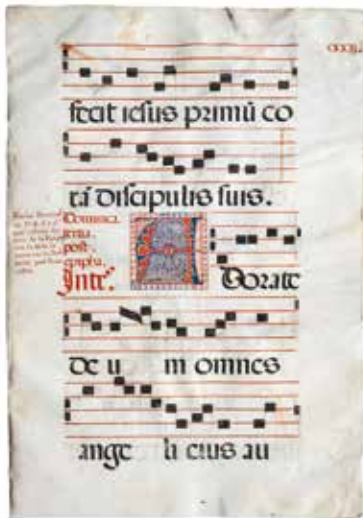 fecit iesus primū co
rā discipulis suis.
Dominica
tertia
post
epipha.
Intr.
Adorate
de u m omnes
ange li eius au